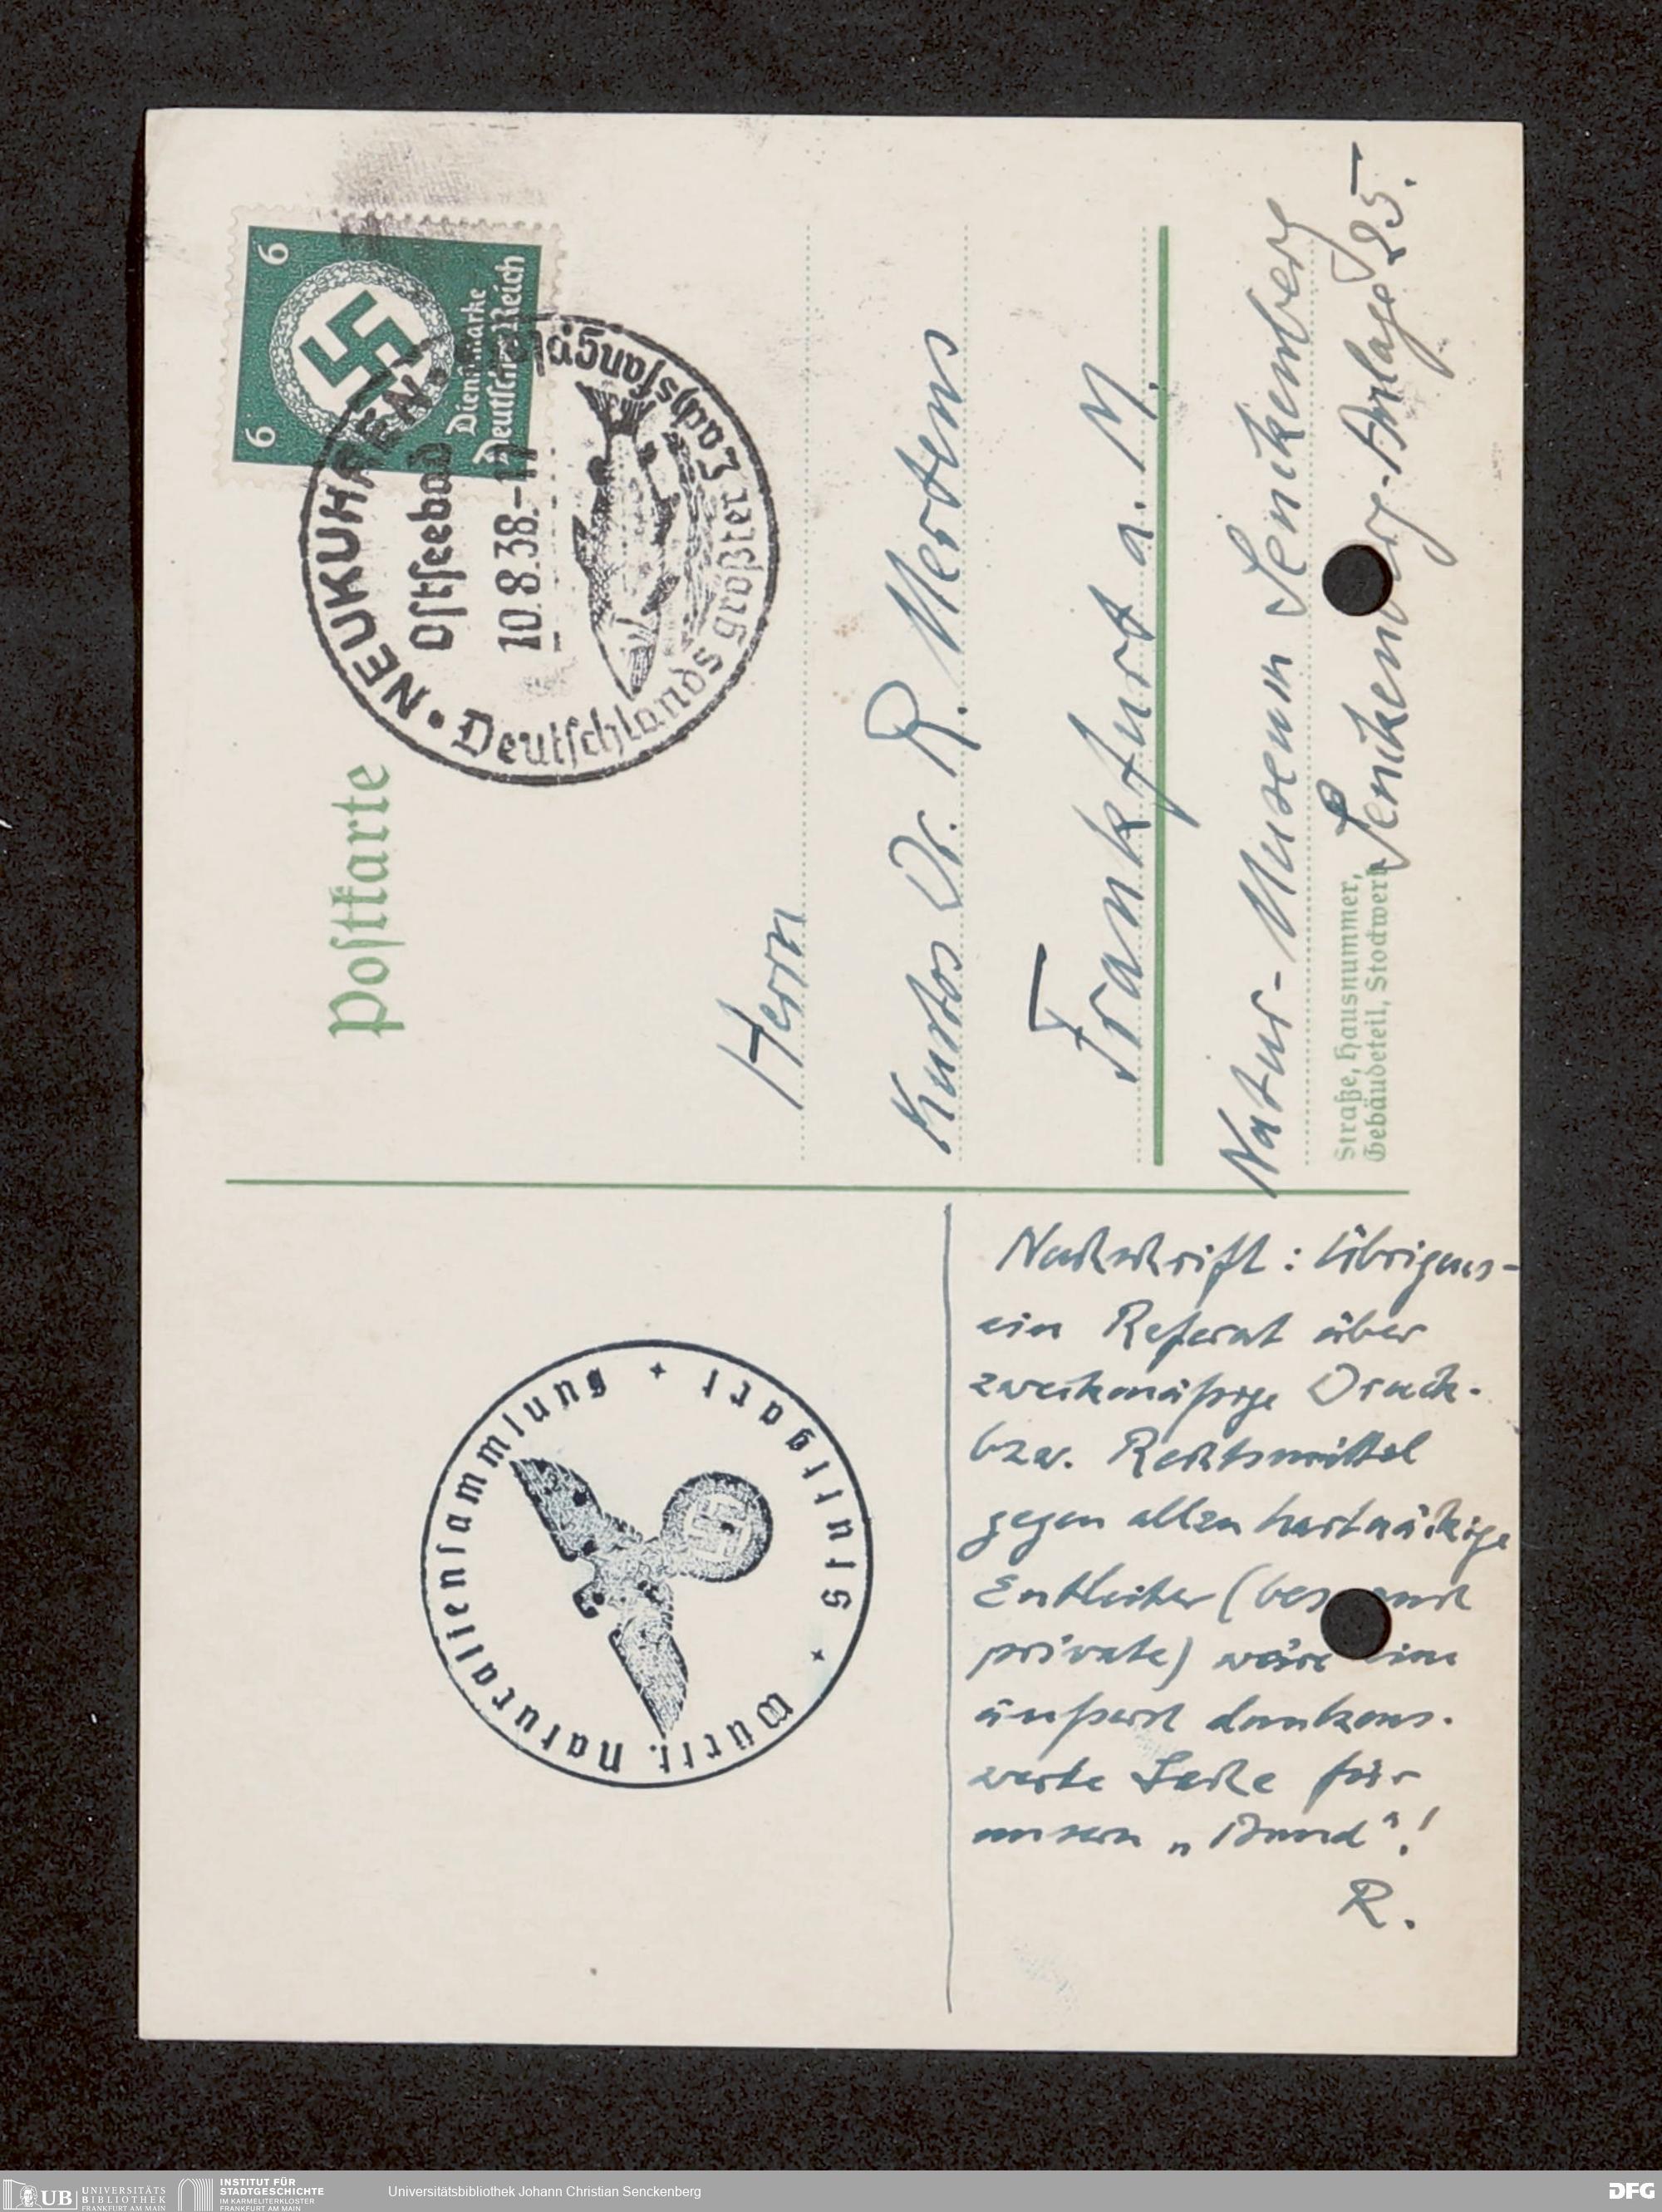 Postkarte
6
6
Dienstmarke
Deutsches Reich
• NEUKUHREN •
Ostseebad
10.8.38.-17
Deutschlands größter Lachsfangplatz
Herrn
Kustos Dr. R. Mertens
Frankfurt a. M.
Natur-Museum Senckenberg
Straße, Hausnummer,
Gebäudeteil, Stockwerk
Senckenberg-Anlage 25.
Württ. Naturaliensammlung + Stuttgart +
Nachschrift: Übrigens-
ein Referat über
zweckmäßige Druck-
bzw. Rechtsmittel
gegen allzu hartnäckige
Entleiher (bes. auch
private) wäre eine
äußerst dankens-
werte Sache für
unsern „Bund"!
R.
UB UNIVERSITÄTS
BIBLIOTHEK
FRANKFURT AM MAIN
INSTITUT FÜR
STADTGESCHICHTE
IM KARMELITERKLOSTER
FRANKFURT AM MAIN
Universitätsbibliothek Johann Christian Senckenberg
DFG